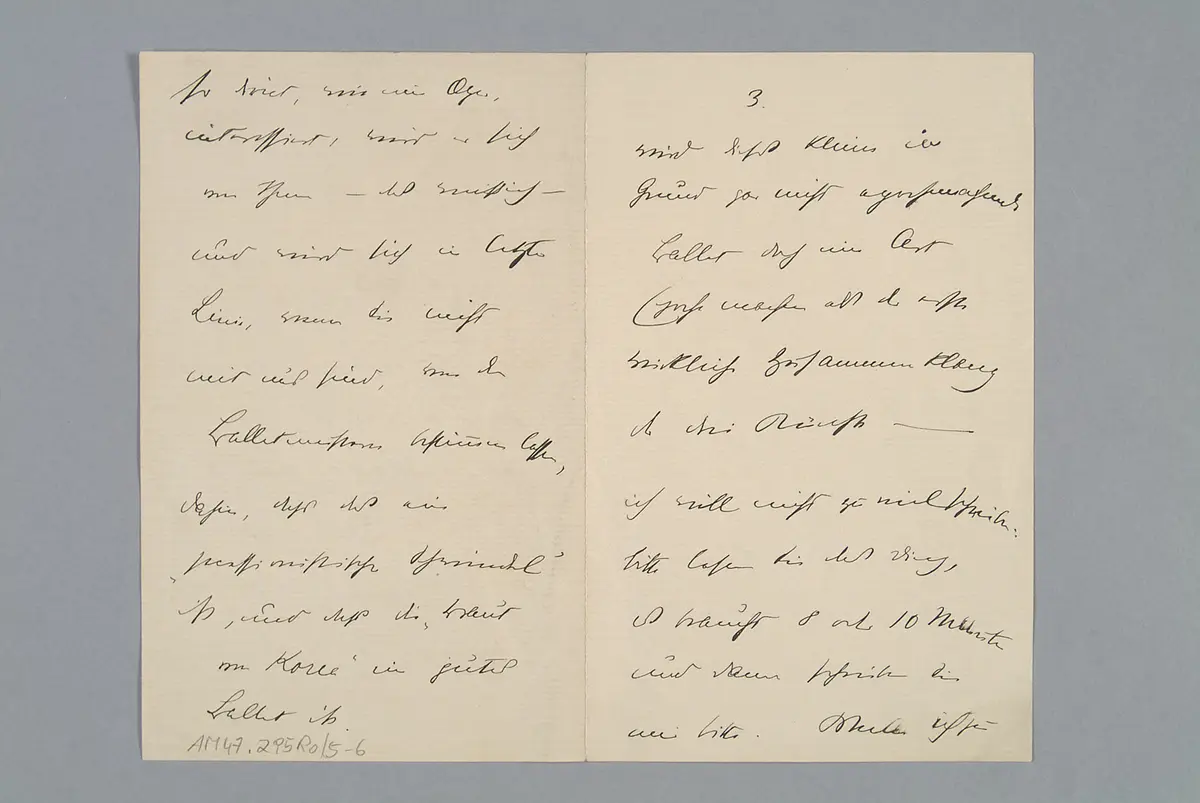 so weit, wie ein Oper,
interessiert, wird er sich
von Ihnen — das weiß ich —
und wird sich in letzter
Linie, wenn Sie nicht
mit uns sind, von den
Balletmeistern bestimmen lassen,
dahin, dass das ein
"secessionistischer Schwindel"
ist, und dass die "Braut
von Korea" ein gutes
Ballet ist.
AM47.295Ro/5-6
3.
wird dieses kleine im
Grund gar nicht
Ballet doch eine Art
Epoche machen als der erste
wirkliche Zusammenklang
der drei Künste —
ich will nicht zu viel schreiben:
bitte lesen Sie das Ding,
es braucht 8 oder 10 Minuten
und dann schreiben Sie
mir bitte.